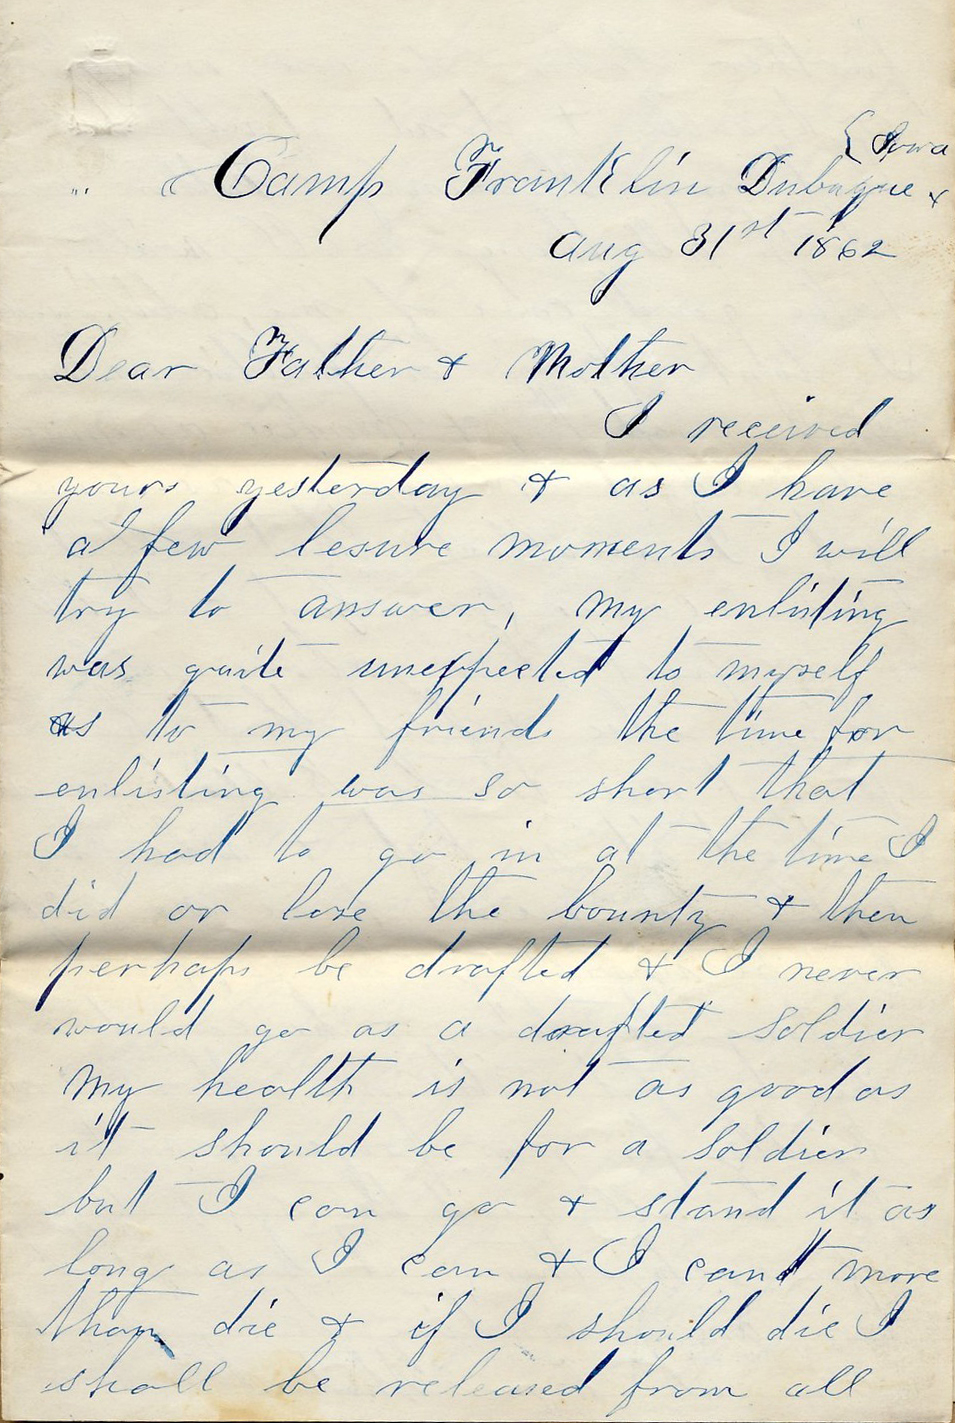 { Iowa
Camp Franklin Dubuque
Aug 31st 1862
Dear Father & Mother
I received
yours yesterday & as I have
a few lesure moments I will
try to answer, my enlisting
was quite unexpected to myself
as to my friends the time for
enlisting was so short that
I had to go in at the time I
did or lose the bounty & then
perhaps be drafted & I never
would go as a drafted soldier
My health is not as good as
it should be for a soldier
but I can go & stand it as
long as I can & I cant more
than die & if I should die I
shall be released from all